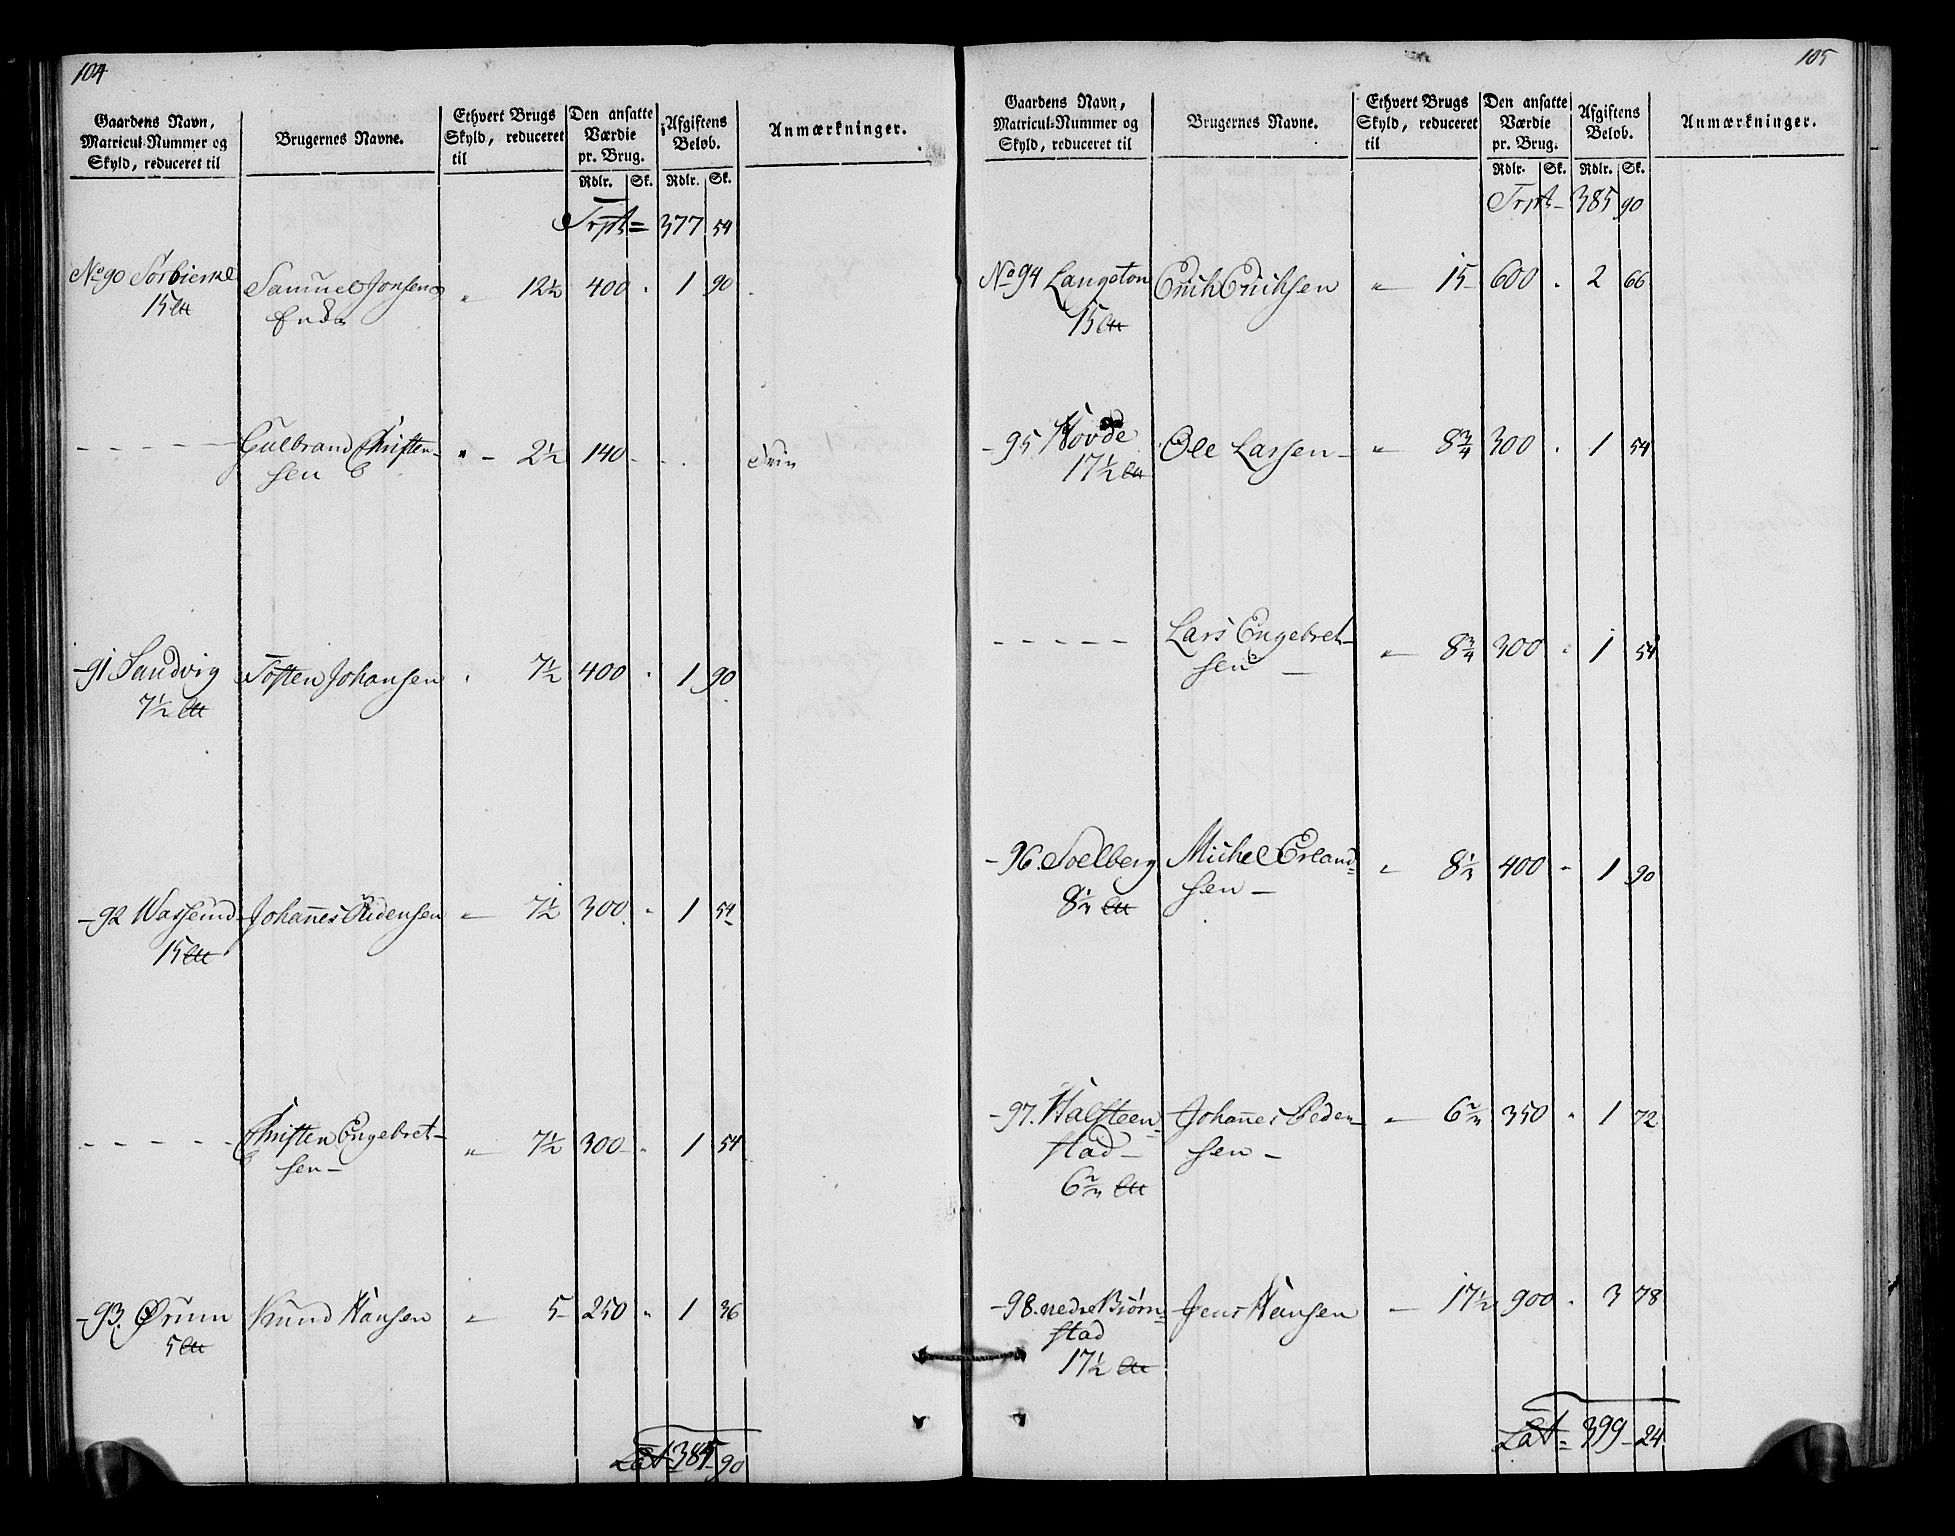 104
Gaardens Navn, Matricul-Nummer og Skyld, reduceret til
Brugernes Navne.
Ethvert Brugs Skyld, reduceret til
Den ansatte Værdie pr. Brug.
Afgiftens Beløb.
Anmærkninger.
Rdlr. Sk. Rdlr. Sk.
Trpt = 377 54
No 90 Sørbierke Samuel Jonsen " 12½ 400 . 1 90
15
- - - - - Gulbrand Christen- " - 2½ 140 - - . frie
sen
- 91 Sandvig Tosten Johansen . 7½ 400 . 1 90
7½
- 92 Wassend Johannes Pedersen " 7½ 300 . 1 54
15
- - - - - Christen Engebret- " 7½ 300 - . 1 54
sen -
- 93. Ørum Knud Hansen " 5 250 " 1 36
5
Lat 385 - 90
105
Gaardens Navn, Matricul-Nummer og Skyld, reduceret til
Brugernes Navne.
Ethvert Brugs Skyld, reduceret til
Den ansatte Værdie pr. Brug.
Afgiftens Beløb.
Anmærkninger.
Rdlr. Sk. Rdlr. Sk.
Trpt - 385 90
No 94 Langston Erich Erichsen " 15 600 . 2 66
15
- 95 Hovde Ole Larsen - " 8¾ 300 . 1 54
17½
- - - - - Lars Engebret- " 8¾ 300 " 1 54
sen -
- 96. Soelberg Michel Erland= " 8⅓ 400 " 1 90
8⅓ sen -
- 97. Halsteen= Johannes Peder= " 6⅔ 350 " 1 72
stad - sen -
6⅔
- 98. nedre Biørn= Jens Hansen - 17½ 900 . 3 78
stad
17½
Lat = 399 - 24